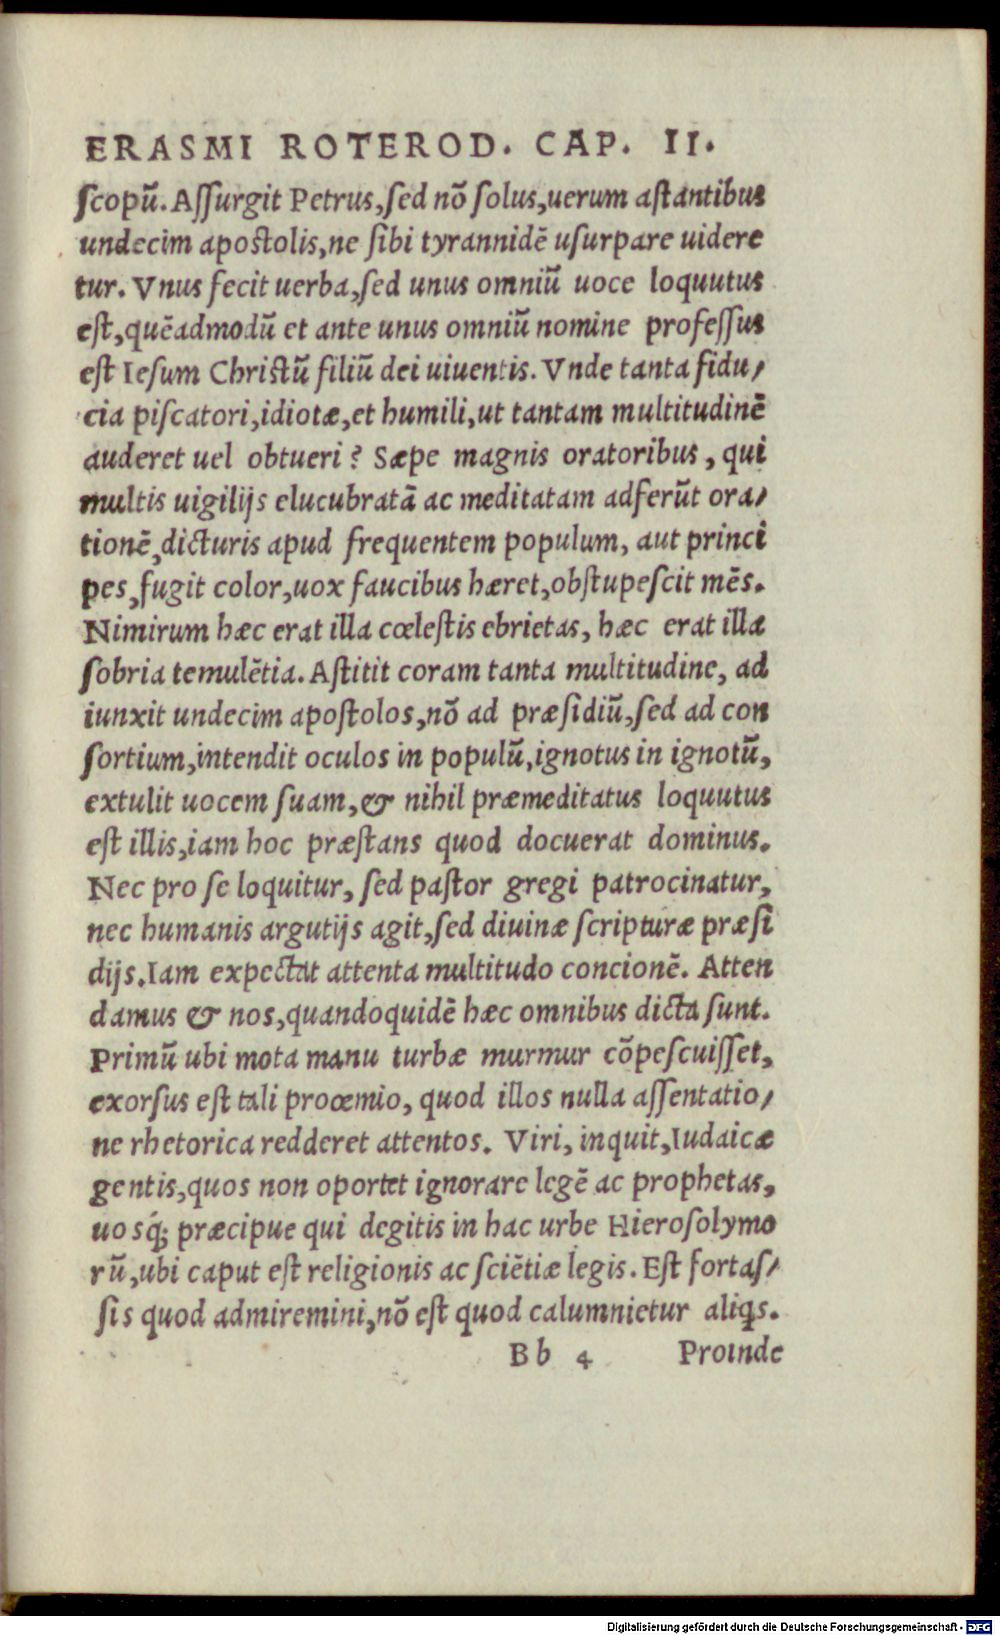 ERASMI ROTEROD. CAP. II.
scopū. Assurgit Petrus, sed nō solus, uerum astantibus
undecim apostolis, ne sibi tyrannidē usurpare uidere
tur. Vnus fecit uerba, sed unus omniū uoce loquutus
est, quēadmodū et ante unus omniū nomine professus
est Iesum Christū filiū dei uiuentis. Vnde tanta fidu/
cia piscatori, idiotæ, et humili, ut tantam multitudinē
auderet uel obtueri? Sæpe magnis oratoribus, qui
multis uigilijs elucubratā ac meditatam adferūt ora/
tionē, dicturis apud frequentem populum, aut princi
pes, fugit color, uox faucibus hæret, obstupescit mēs.
Nimirum hæc erat illa cœlestis ebrietas, hæc erat illa
sobria temulētia. Astitit coram tanta multitudine, ad
iunxit undecim apostolos, nō ad præsidiū, sed ad con
sortium, intendit oculos in populū, ignotus in ignotū,
extulit uocem suam, & nihil præmeditatus loquutus
est illis, iam hoc præstans quod docuerat dominus.
Nec pro se loquitur, sed pastor gregi patrocinatur,
nec humanis argutijs agit, sed diuinæ scripturæ præsi
dijs. Iam expectat attenta multitudo concionē. Atten
damus & nos, quandoquidē hæc omnibus dicta sunt.
Primū ubi mota manu turbæ murmur cōpescuisset,
exorsus est tali proœmio, quod illos nulla assentatio/
ne rhetorica redderet attentos. Viri, inquit, Iudaicæ
gentis, quos non oportet ignorare legē ac prophetas,
uosq́; præcipue qui degitis in hac urbe Hierosolymo
rū, ubi caput est religionis ac sciētiæ legis. Est fortas/
sis quod admiremini, nō est quod calumnietur aliꝗs.
Bb 4 Proinde
Digitalisierung gefördert durch die Deutsche Forschungsgemeinschaft - DFG